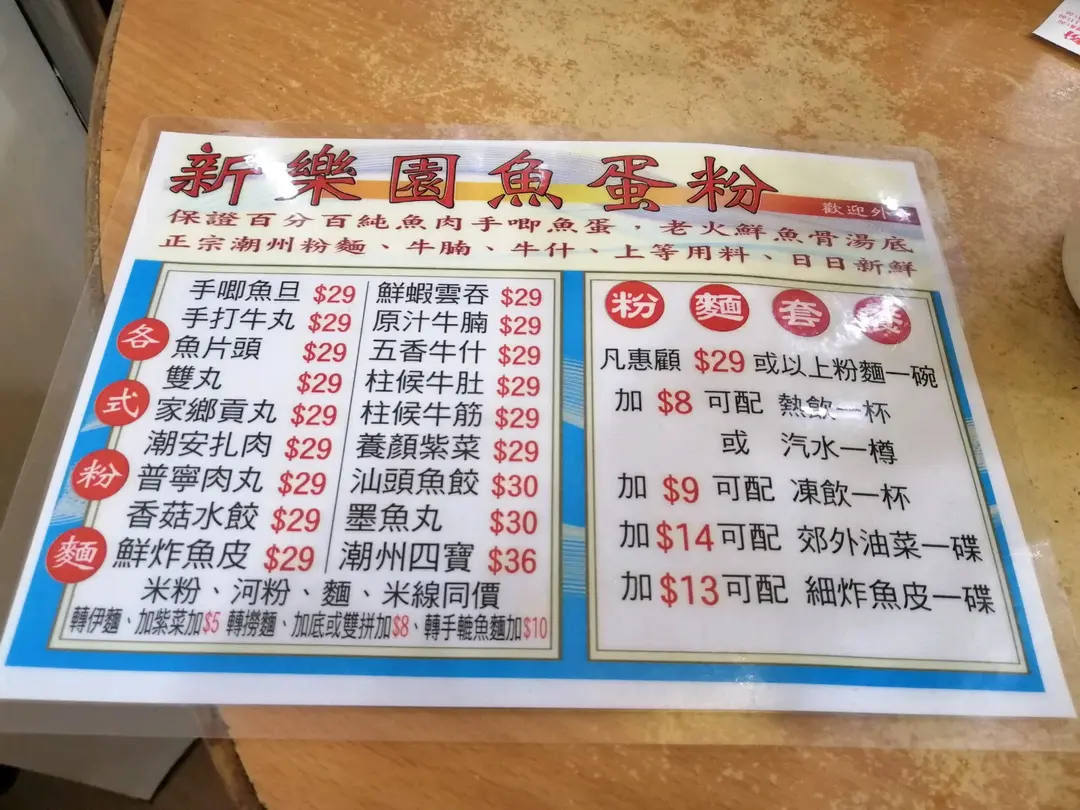 新樂園魚蛋粉
歡迎外
保證百分百純魚肉手唧魚蛋，老火鮮魚骨湯底
正宗潮州粉麵、牛腩、牛什、上等用料、日日新鮮
各式粉麵
手唧魚旦 $29
手打牛丸 $29
魚片頭 $29
雙丸 $29
家鄉貢丸 $29
潮安扎肉 $29
普寧肉丸 $29
香菇水餃 $29
鮮炸魚皮 $29
鮮蝦雲吞 $29
原汁牛腩 $29
五香牛什 $29
柱候牛肚 $29
柱候牛筋 $29
養顏紫菜 $29
汕頭魚餃 $30
墨魚丸 $30
潮州四寶 $36
米粉、河粉、麵、米線同價
轉伊麵、加紫菜加$5 轉撈麵、加底或雙拼加$8、轉手轆魚麵加$10
粉麵套餐
凡惠顧 $29 或以上粉麵一碗
加 $8 可配 熱飲一杯
或 汽水一樽
加 $9 可配 凍飲一杯
加 $14 可配 郊外油菜一碟
加 $13 可配 細炸魚皮一碟